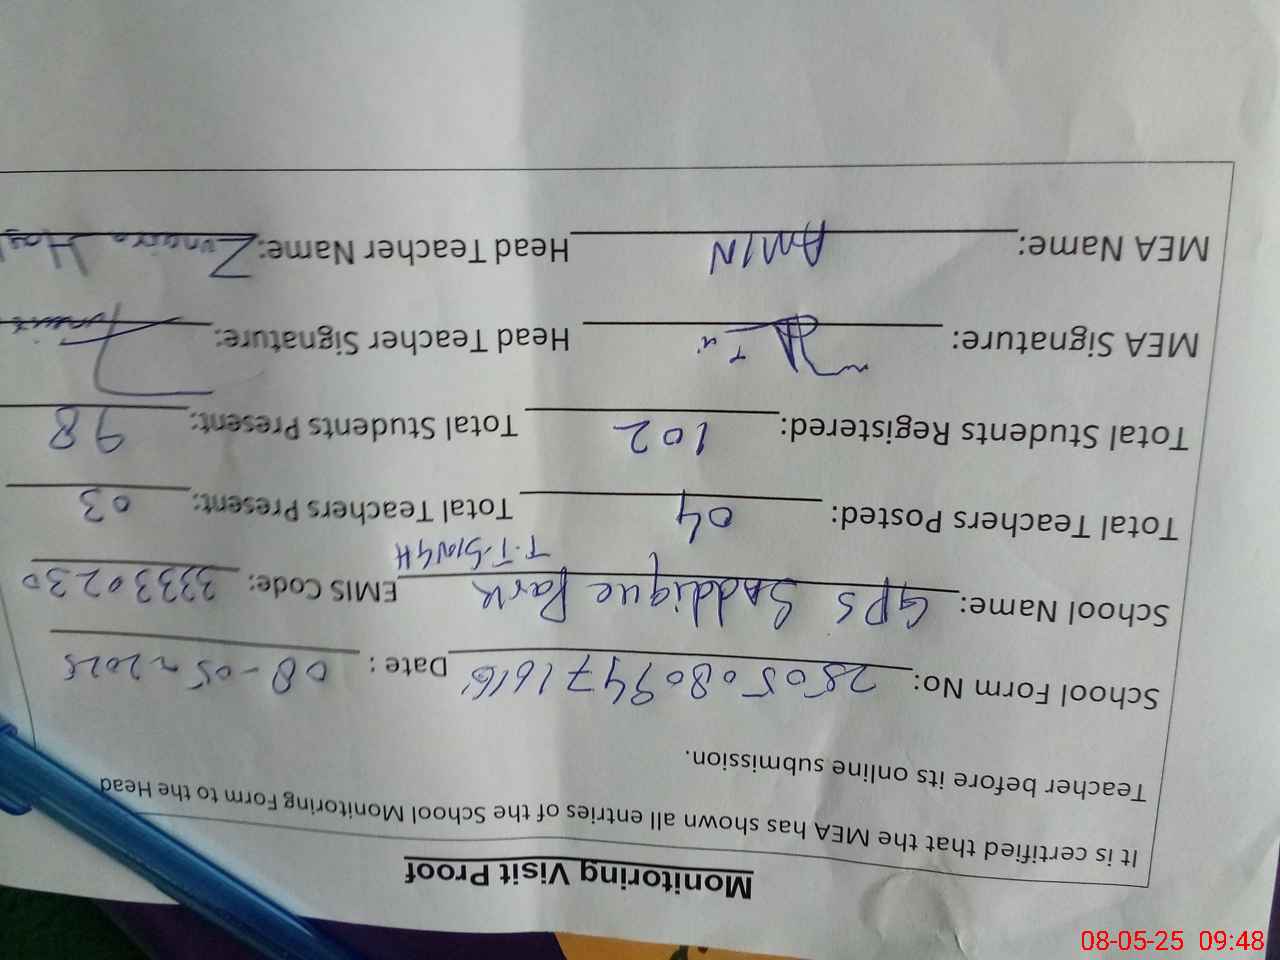 Monitoring Visit Proof
It is certified that the MEA has shown all entries of the School Monitoring Form to the Head
Teacher before its online submission.
School Form No: 25050809471616 Date: 08-05-2025
School Name: GPS Saddique Park T.T.SINGH EMIS Code: 33330230
Total Teachers Posted: 04 Total Teachers Present: 03
Total Students Registered: 102 Total Students Present: 98
MEA Signature: Head Teacher Signature:
MEA Name: AMIN Head Teacher Name: Zunaira
08-05-25 09:48